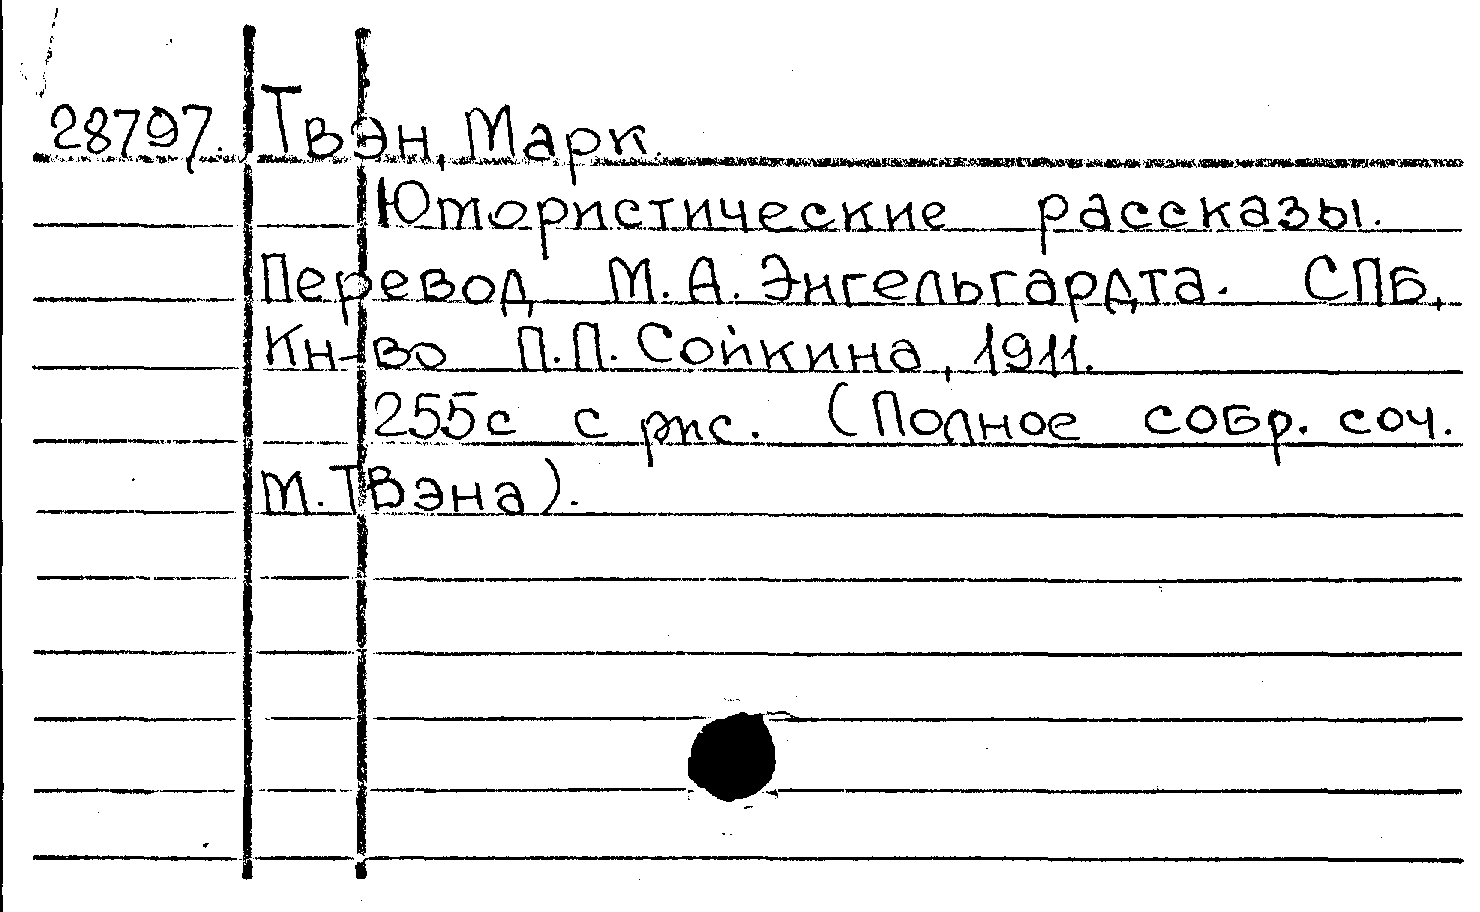 28797. Твэн, Марк.
Юмористические рассказы.
Перевод М.А. Энгельгардта. СПБ,
Кн-во П.П. Сойкина, 1911.
255с с рис. (Полное собр. соч.
М. Твэна).